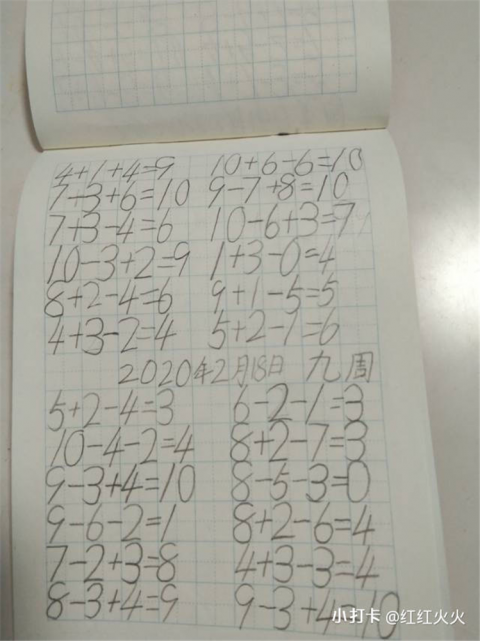 4+1+4=9 10+6-6=10
7-3+6=10 9-7+8=10
7+3-4=6 10-6+3=7
10-3+2=9 1+3-0=4
8+2-4=6 9+1-5=5
4+3-2=4 5+2-1=6
2020年2月18日 九周
5+2-4=3 6-2-1=3
10-4-2=4 8+2-7=3
9-3+4=10 8-5-3=0
9-6-2=1 8+2-6=4
7-2+3=8 4+3-3=4
8-3+4=9 9-3+4=10
小打卡 @红红火火